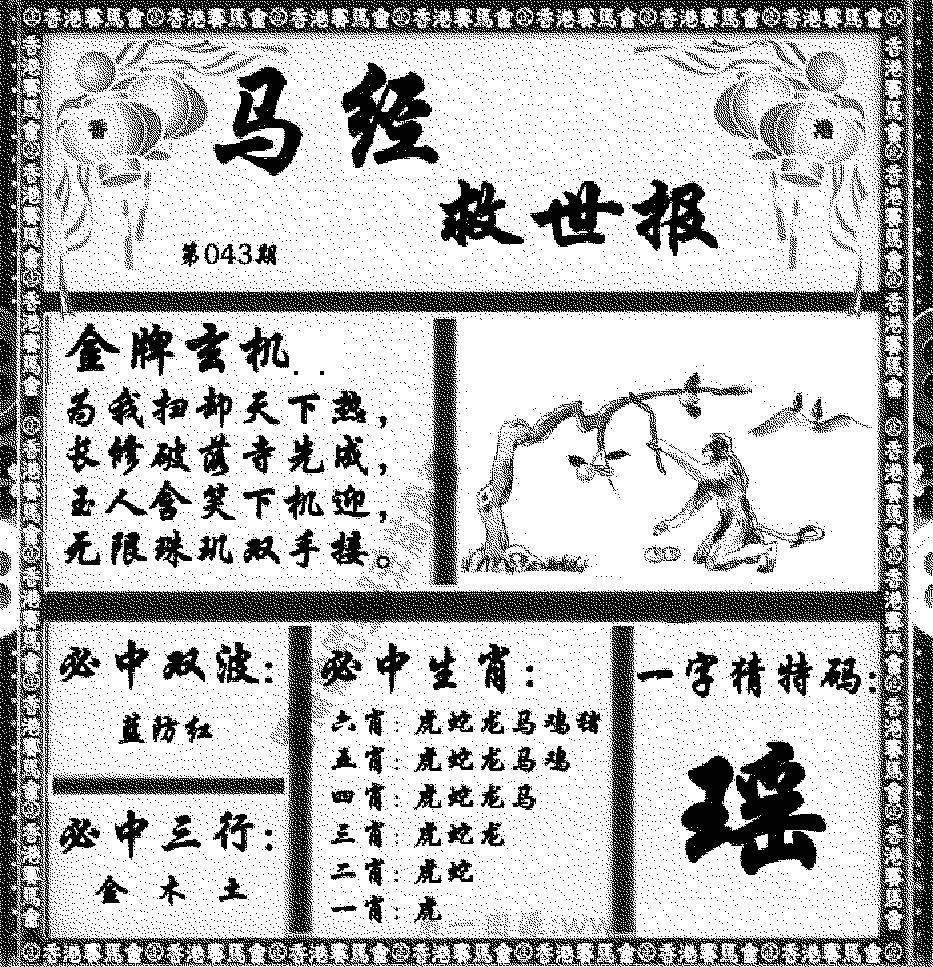 香港賽馬會 香港賽馬會 香港賽馬會 香港賽馬會 香港賽馬會 香港賽馬會 香港賽馬會
香
港
马经
救世报
第043期
金牌玄机..
为我扫却天下热，
长修破荡寺先成，
玉人含笑下机迎，
无限珠玑双手接。
必中双波：
蓝防红
必中三行：
金 木 土
必中生肖：
六肖：虎蛇龙马鸡猪
五肖：虎蛇龙马鸡
四肖：虎蛇龙马
三肖：虎蛇龙
二肖：虎蛇
一肖：虎
一字猜特码：
瑶
香港賽馬會 香港賽馬會 香港賽馬會 香港賽馬會 香港賽馬會 香港賽馬會 香港賽馬會